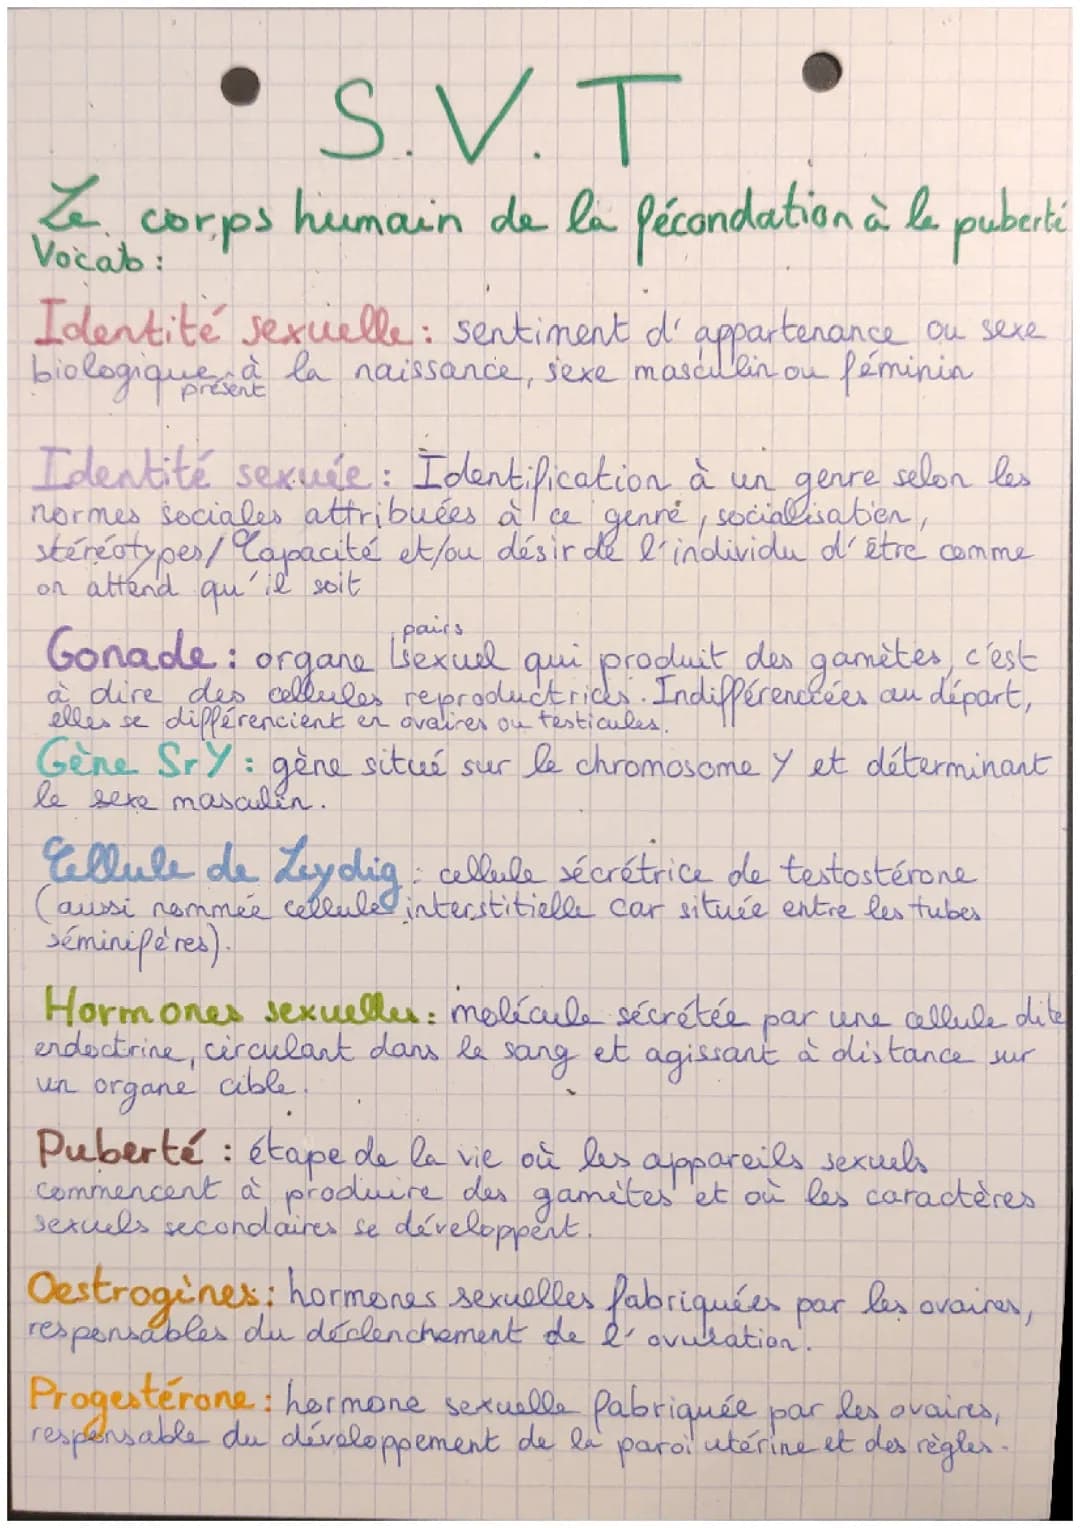 S.V.T
Le corps humain de la fécondation à la puberté
Vocab :
Identité sexuelle : sentiment d'appartenance ou sexe
biologique à la naissance, sexe masculin ou féminin
présent
Identité sexuée : Identification à un genre selon les
normes sociales attribuées à ce genre, socialisation,
stéréotypes/ Capacité et/ou désir de l'individu d'être comme
on attend qu'il soit
pairs
Gonade : organe sexuel qui produit des gamètes, c'est
à dire des cellules reproductrices. Indifférenciées au départ,
elles se différencient en ovaires ou testicules.
Gène SrY : gène situé sur le chromosome Y et déterminant
le sexe masculin.
Cellule de Leydig : cellule sécrétrice de testostérone
(aussi nommée cellule interstitielle car située entre les tubes
séminifères).
Hormones sexuelles : molécule sécrétée par une cellule dite
endoctrine, circulant dans le sang et agissant à distance sur
un organe cible.
Puberté : étape de la vie où les appareils sexuels
commencent à produire des gamètes et où les caractères
sexuels secondaires se développent.
Oestrogènes : hormones sexuelles fabriquées par les ovaires,
responsables du déclenchement de l'ovulation.
Progestérone : hormone sexuelle fabriquée par les ovaires,
responsable du développement de la paroi utérine et des règles.